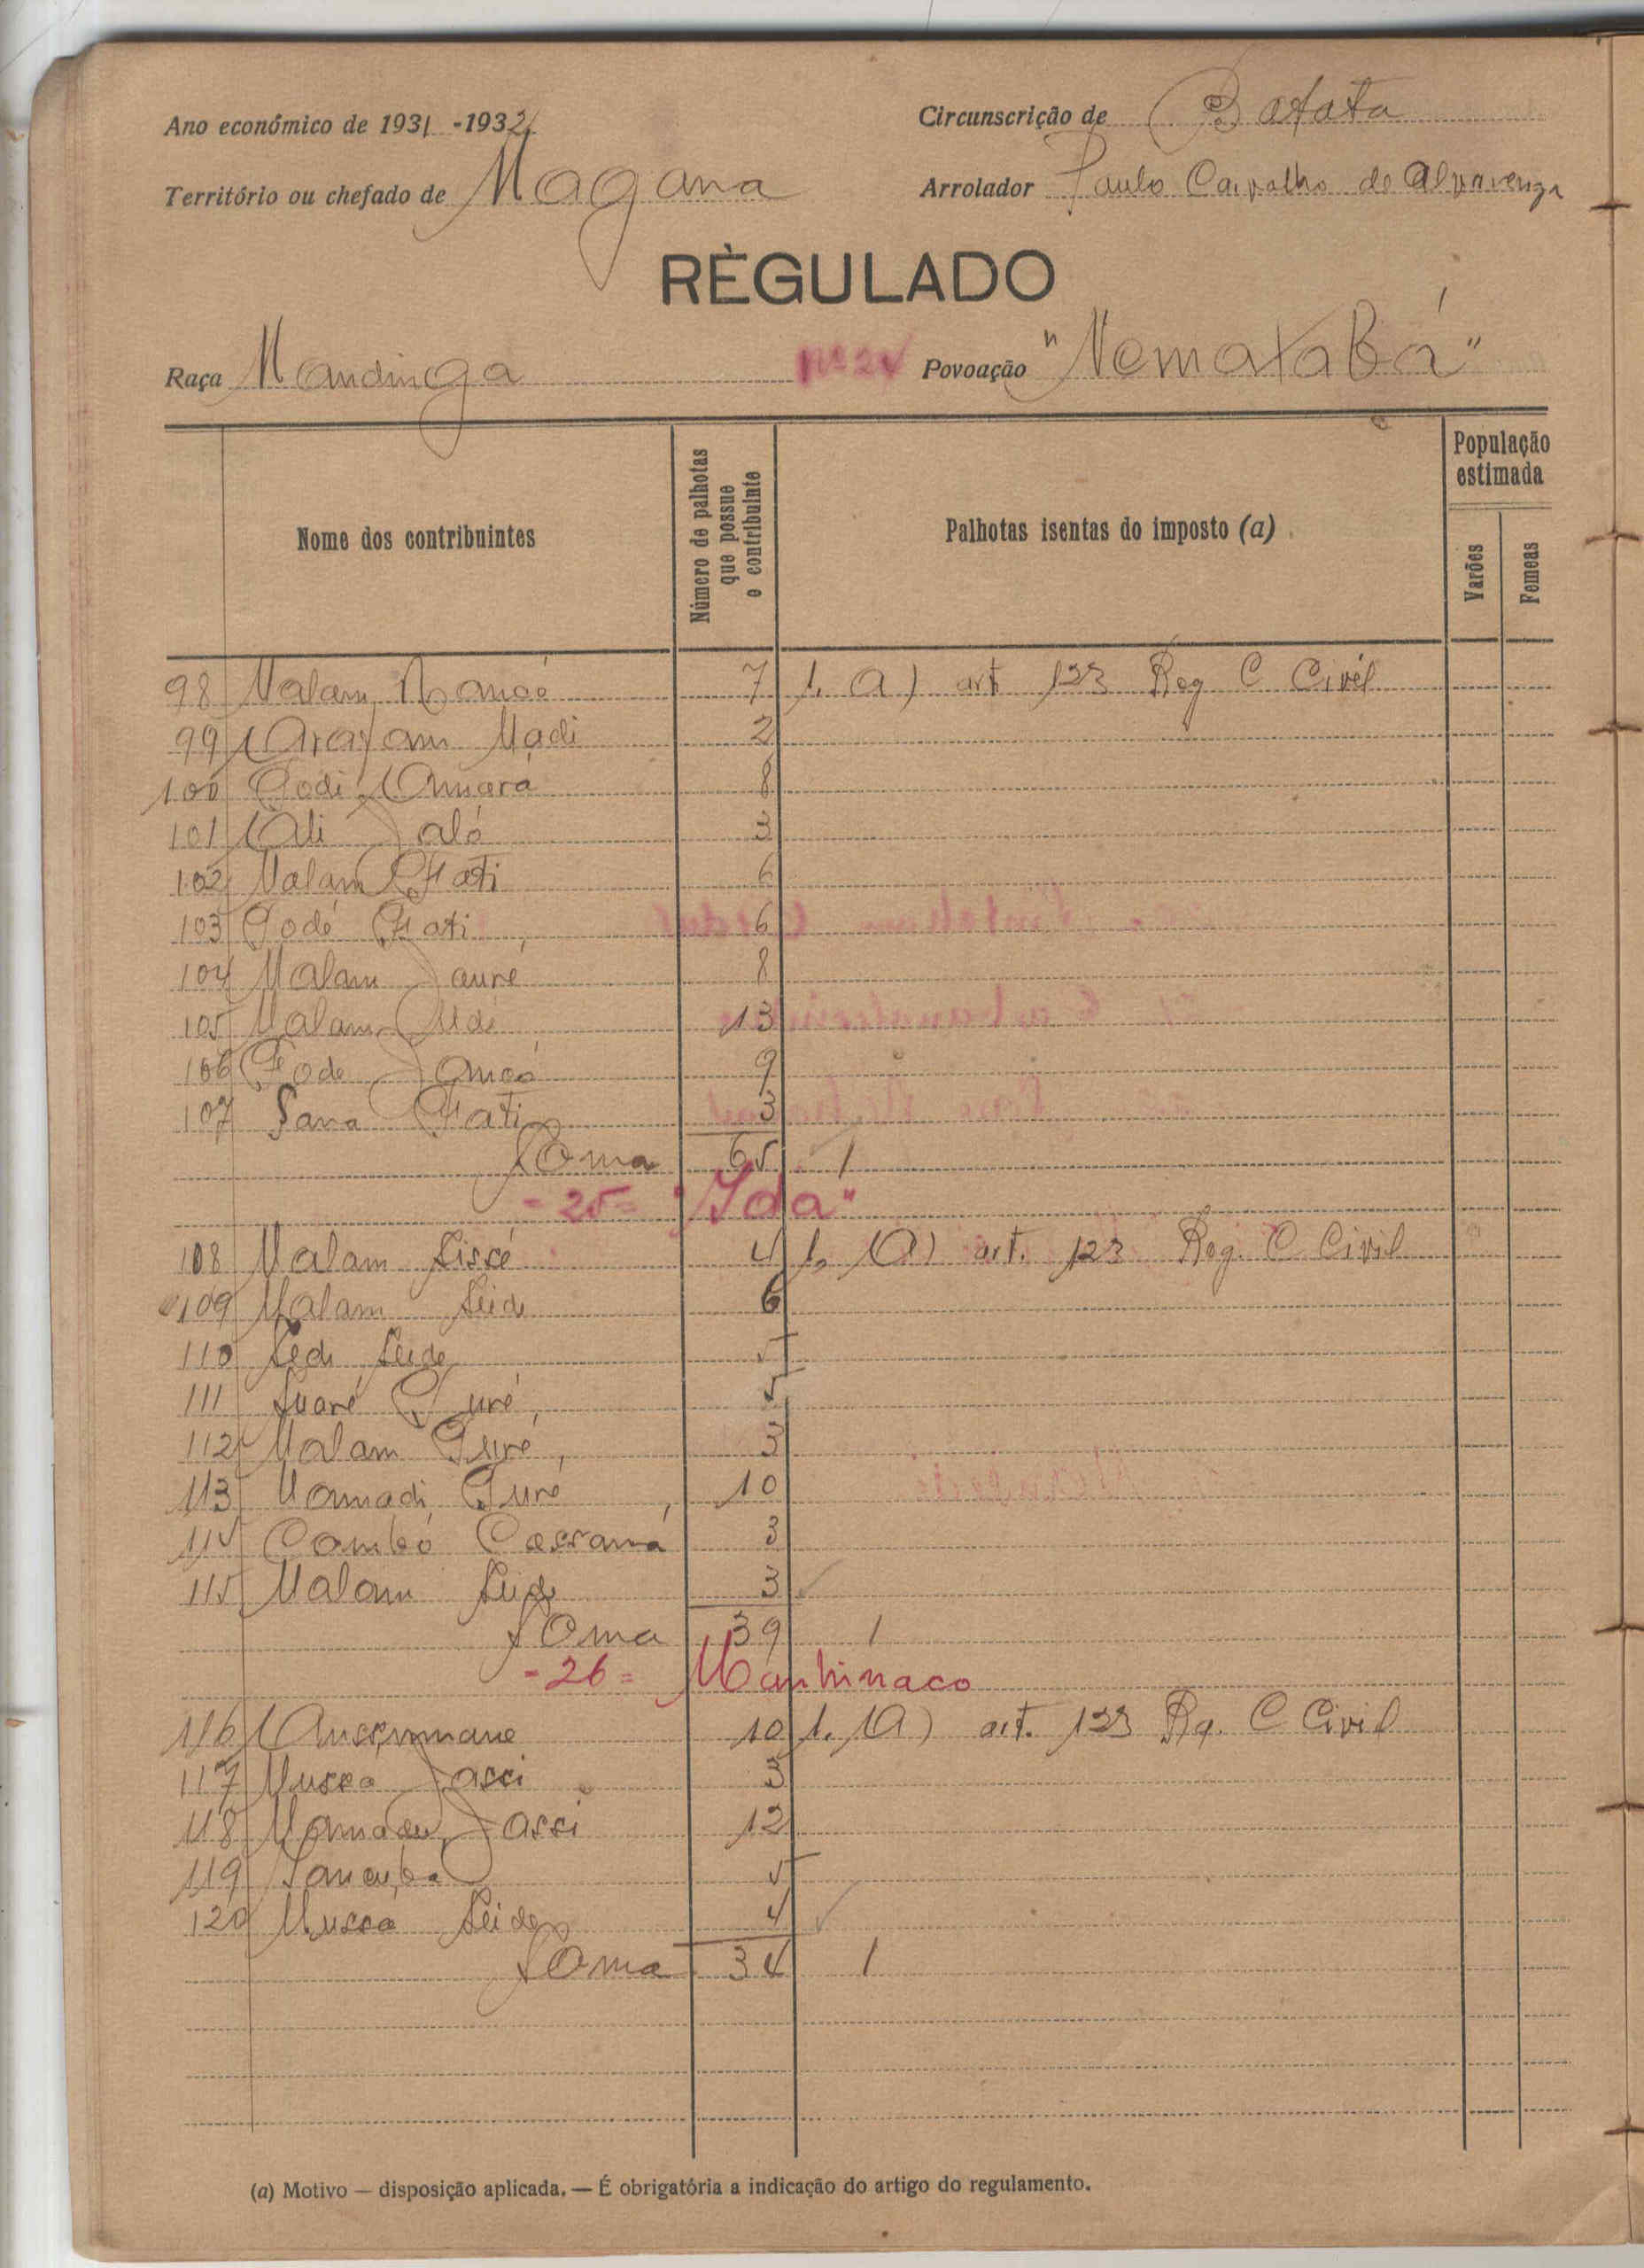 Ano económico de 1931 -1932
Circunscrição de Bafata
Território ou chefado de Magana
Arrolador Paulo Carvalho de Alvarenga
RÈGULADO
Raça Mandinga
Nº 24
Povoação "Nematabá"
Nome dos contribuintes
Número de palhotas que possue o contribuinte
Palhotas isentas do imposto (a)
População estimada
Varões
Femeas
98 Malam 7 1. a) art 133 Reg C Civil
99 Madi 2
100 8
101 Ali Jaló 3
102 Malam Fati 6
103 Fati 6
104 Malam 8
105 Malam 13
106 9
107 Sana Fati 3
Soma 65 1
- 25 = "Ida"
108 Malam Sissé 4 1. (A) art. 133 Reg. C Civil
109 Malam Seide 6
110 Sedi Seide 5
111 Suaré Turé 5
112 Malam Turé 3
113 Mamadi Turé 10
114 Combó Cassamá 3
115 Malam Seide 3
Soma 39 1
- 26 = Manhinaco
116 10 1. (A) art. 133 Rg. C Civil
117 Mussa Jassi 3
118 Mamadu Jassi 12
119 5
120 Mussa Seide 4
Soma 34 1
(a) Motivo — disposição aplicada. — É obrigatória a indicação do artigo do regulamento.